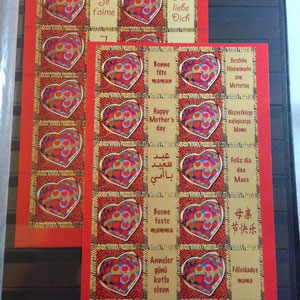 Je
t'aime
Ich
liebe
Dich
Bonne
fête
maman
Herzliche
Glückwünsche
zum
Muttertag
Happy
Mother's
day
Wszystkiego
najlepszego,
Mamo
عيد
سعيد
يا أمي
Feliz dia
das
Maes
Bonne
feste
mamma
母亲
节快乐
Anneler
günü
kutlu olsun
Felicidades
mama